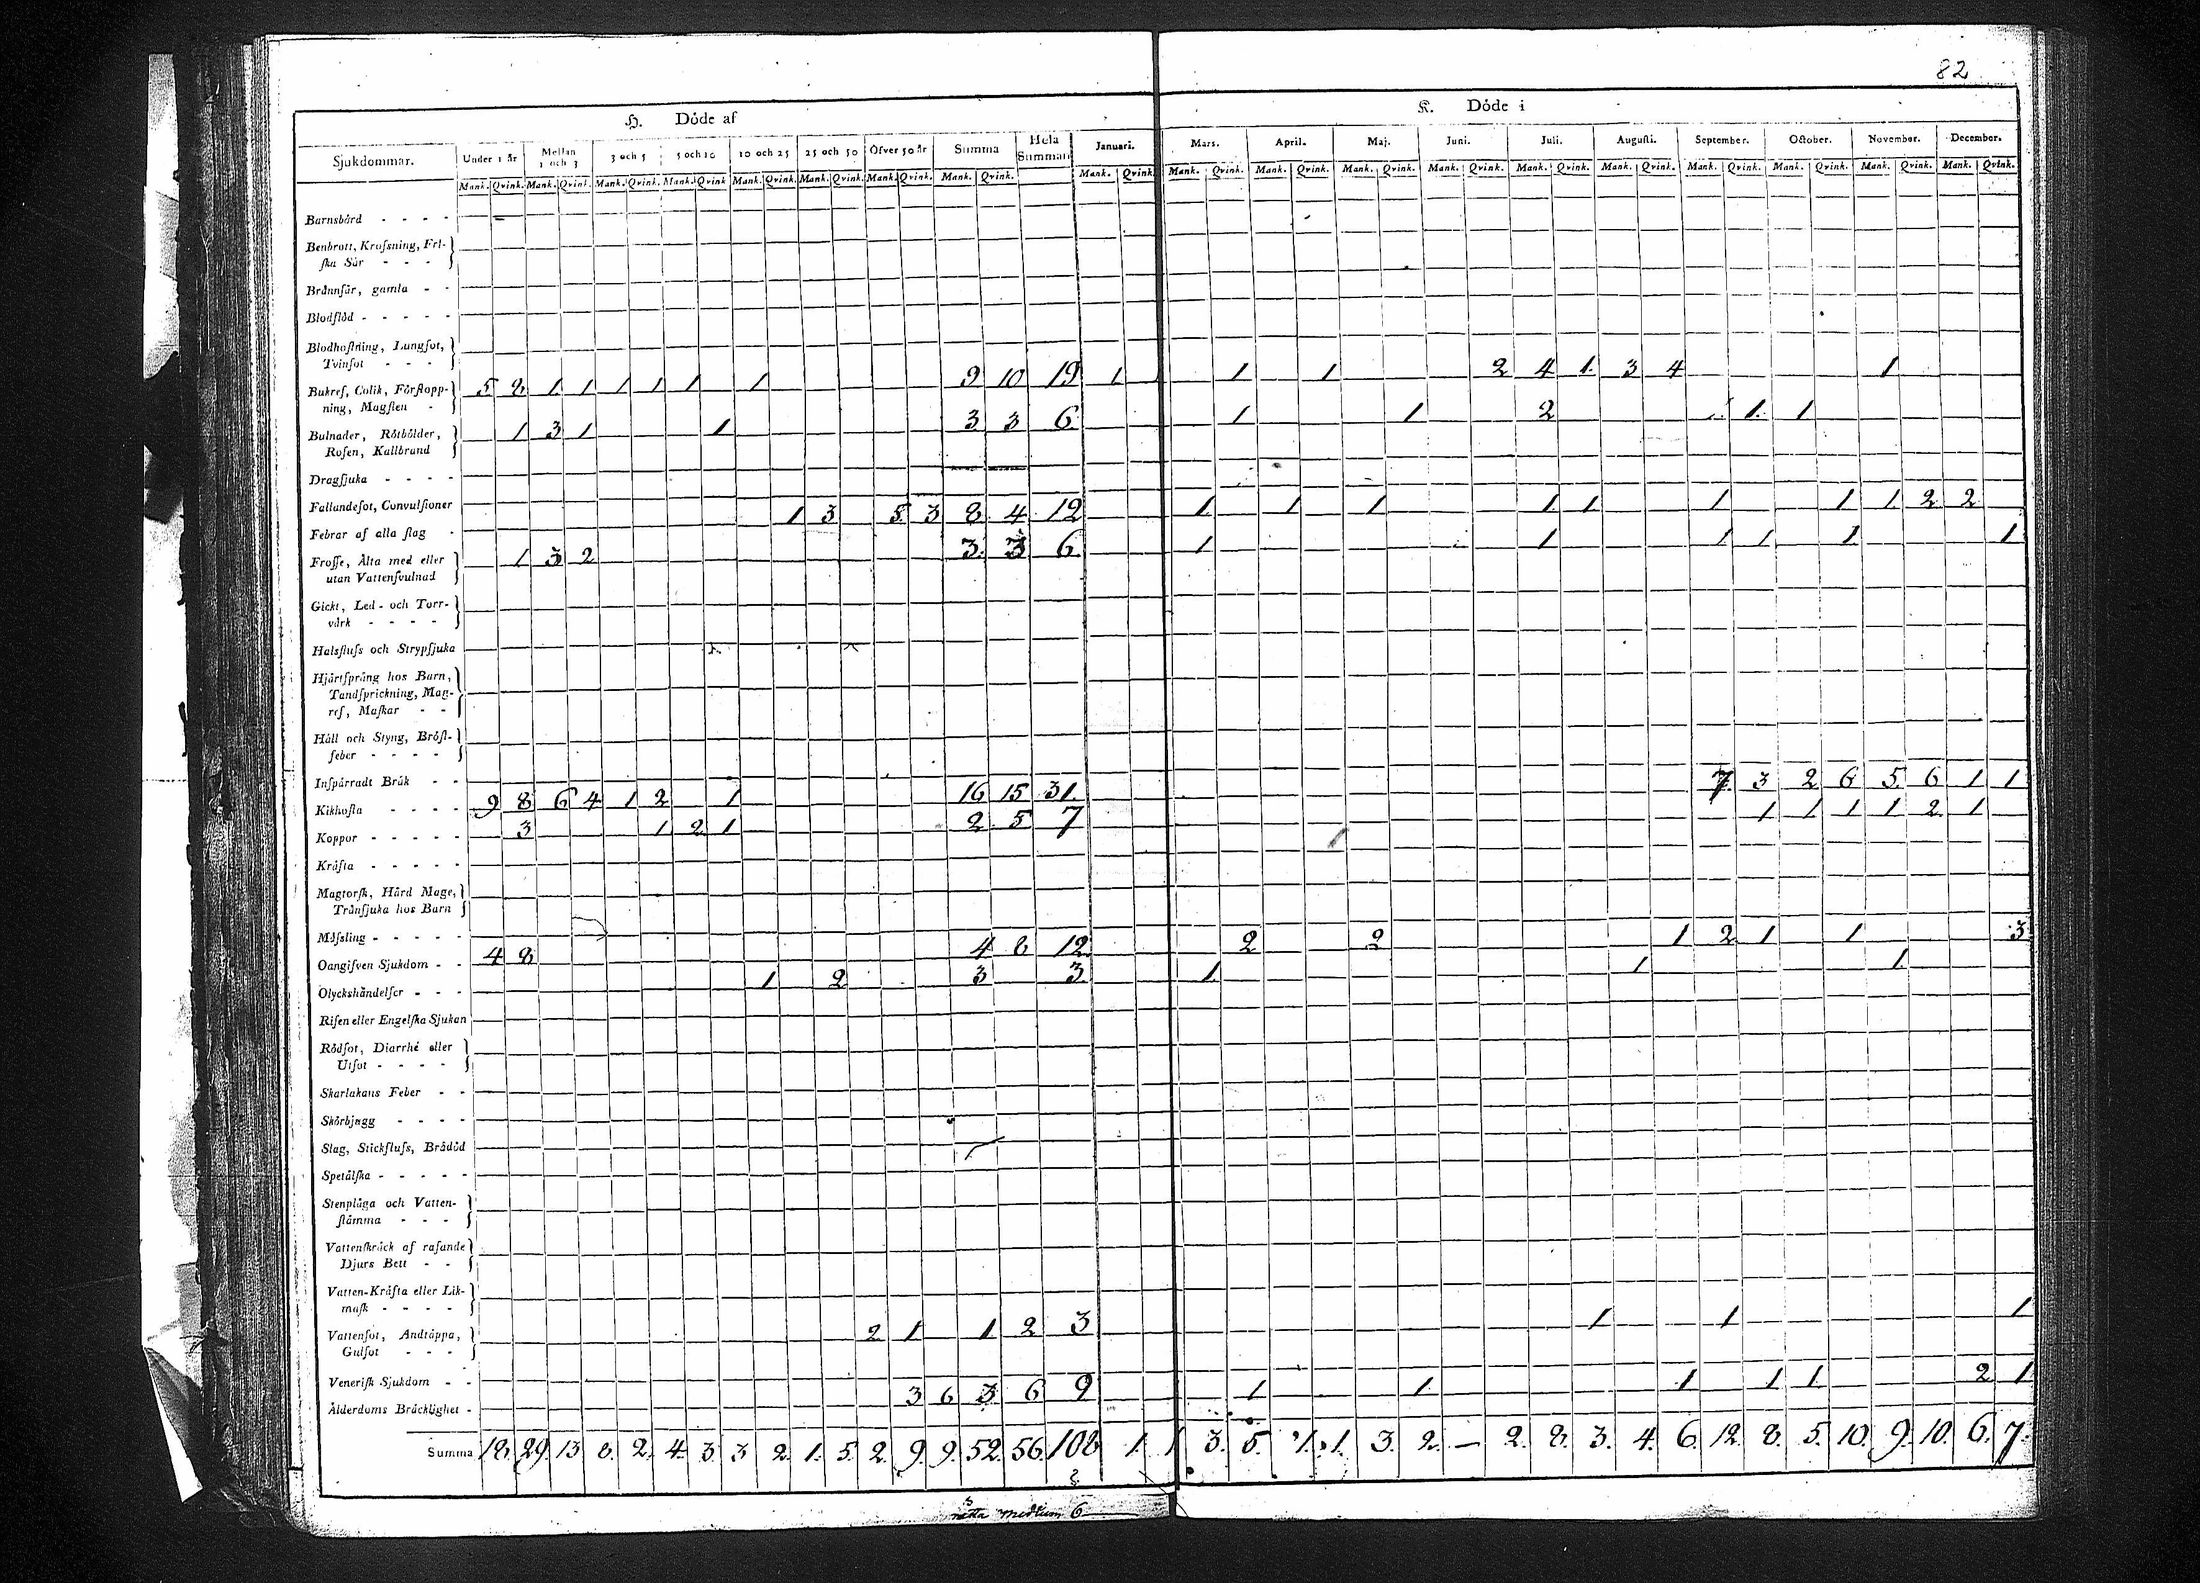 82
H. Döde af
K. Döde i
Sjukdommar. Under 1 år Mellan 1 och 3 3 och 5 5 och 10 10 och 25 25 och 50 Öfver 50 år Summa Hela Summan Januari. Mars. April. Maj. Juni. Juli. Augusti. September. October. November. December.
Mank. Qvink. Mank. Qvink. Mank. Qvink. Mank. Qvink. Mank. Qvink. Mank. Qvink. Mank. Qvink. Mank. Qvink. Mank. Qvink. Mank. Qvink. Mank. Qvink. Mank. Qvink. Mank. Qvink. Mank. Qvink. Mank. Qvink. Mank. Qvink. Mank. Qvink. Mank. Qvink. Mank. Qvink.
Barnsbörd - - - -
Benbrott, Kroſsning, Fri-
ſka Sår - - -
Brånnſår, gamla - -
Blodflöd - - - - -
Blodhoſtning, Lungſot,
Tvinſot - - -
5 2 1 1 1 1 1 1 9 10 19 1 1 1 2 4 1 3 4 1
Bukref, Colik, Förſtopp-
ning, Magſten -
1 3 1 1 3 3 6 1 1 2 1 1 1
Bulnader, Rötbölder,
Roſen, Kallbrand
Dragſjuka - - - -
Fallandeſot, Convulſioner
1 3 5 3 8 4 12 1 1 1 1 1 1 1 1 2 2
Febrar af alla ſlag -
1 3 2 3 3 6 1 1 1 1 1 1
Froſſe, Ålta med eller
utan Vattenſvulnad
Gickt, Led- och Torr-
vårk - - - -
Halsfluſs och Strypſjuka
Hjårtſprång hos Barn,
Tandſprickning, Mag-
ref, Maſkar - -
Håll och Styng, Bröſt-
feber - - - -
Inſpårradt Bråk - -
9 8 6 4 1 2 1 16 15 31 7 3 2 6 5 6 1 1
Kikhoſta - - - -
3 1 2 1 2 5 7 1 1 1 1 2 1
Koppor - - - - -
Kråfta - - - - -
Magtorſk, Hård Mage,
Trånſjuka hos Barn
Måſsling - - - - -
4 8 4 8 12 2 2 1 2 1 1 3
Oangifven Sjukdom - -
1 2 3 3 1 1 1
Olyckshåndelſer - - -
Riſen eller Engelſka Sjukan
Rödſot, Diarrhé eller
Utſot - - - -
Skarlakans Feber - -
Skörbjugg - - - -
Slag, Stickfluſs, Brådöd
Spetålſka - - - - -
Stenplåga och Vatten-
ſtåmma - - -
Vattenſkråck af raſande
Djurs Bett - -
Vatten-Kråfta eller Lik-
maſk - - - -
2 1 1 2 3 1 1 1
Vattenſot, Andtåppa,
Gulſot - - -
Veneriſk Sjukdom - -
3 6 3 6 9 1 1 1 1 1 2 1
Ålderdoms Bråcklighet -
Summa 18. 29. 13 8. 2. 4. 3. 3 2. 1. 5. 2. 9. 9. 52. 56. 108 1. 1 3. 5. 1. 1. 3. 2. — 2. 8. 3. 4. 6. 12. 8. 5. 10. 9. 10. 6. 7.
rätta medium 6